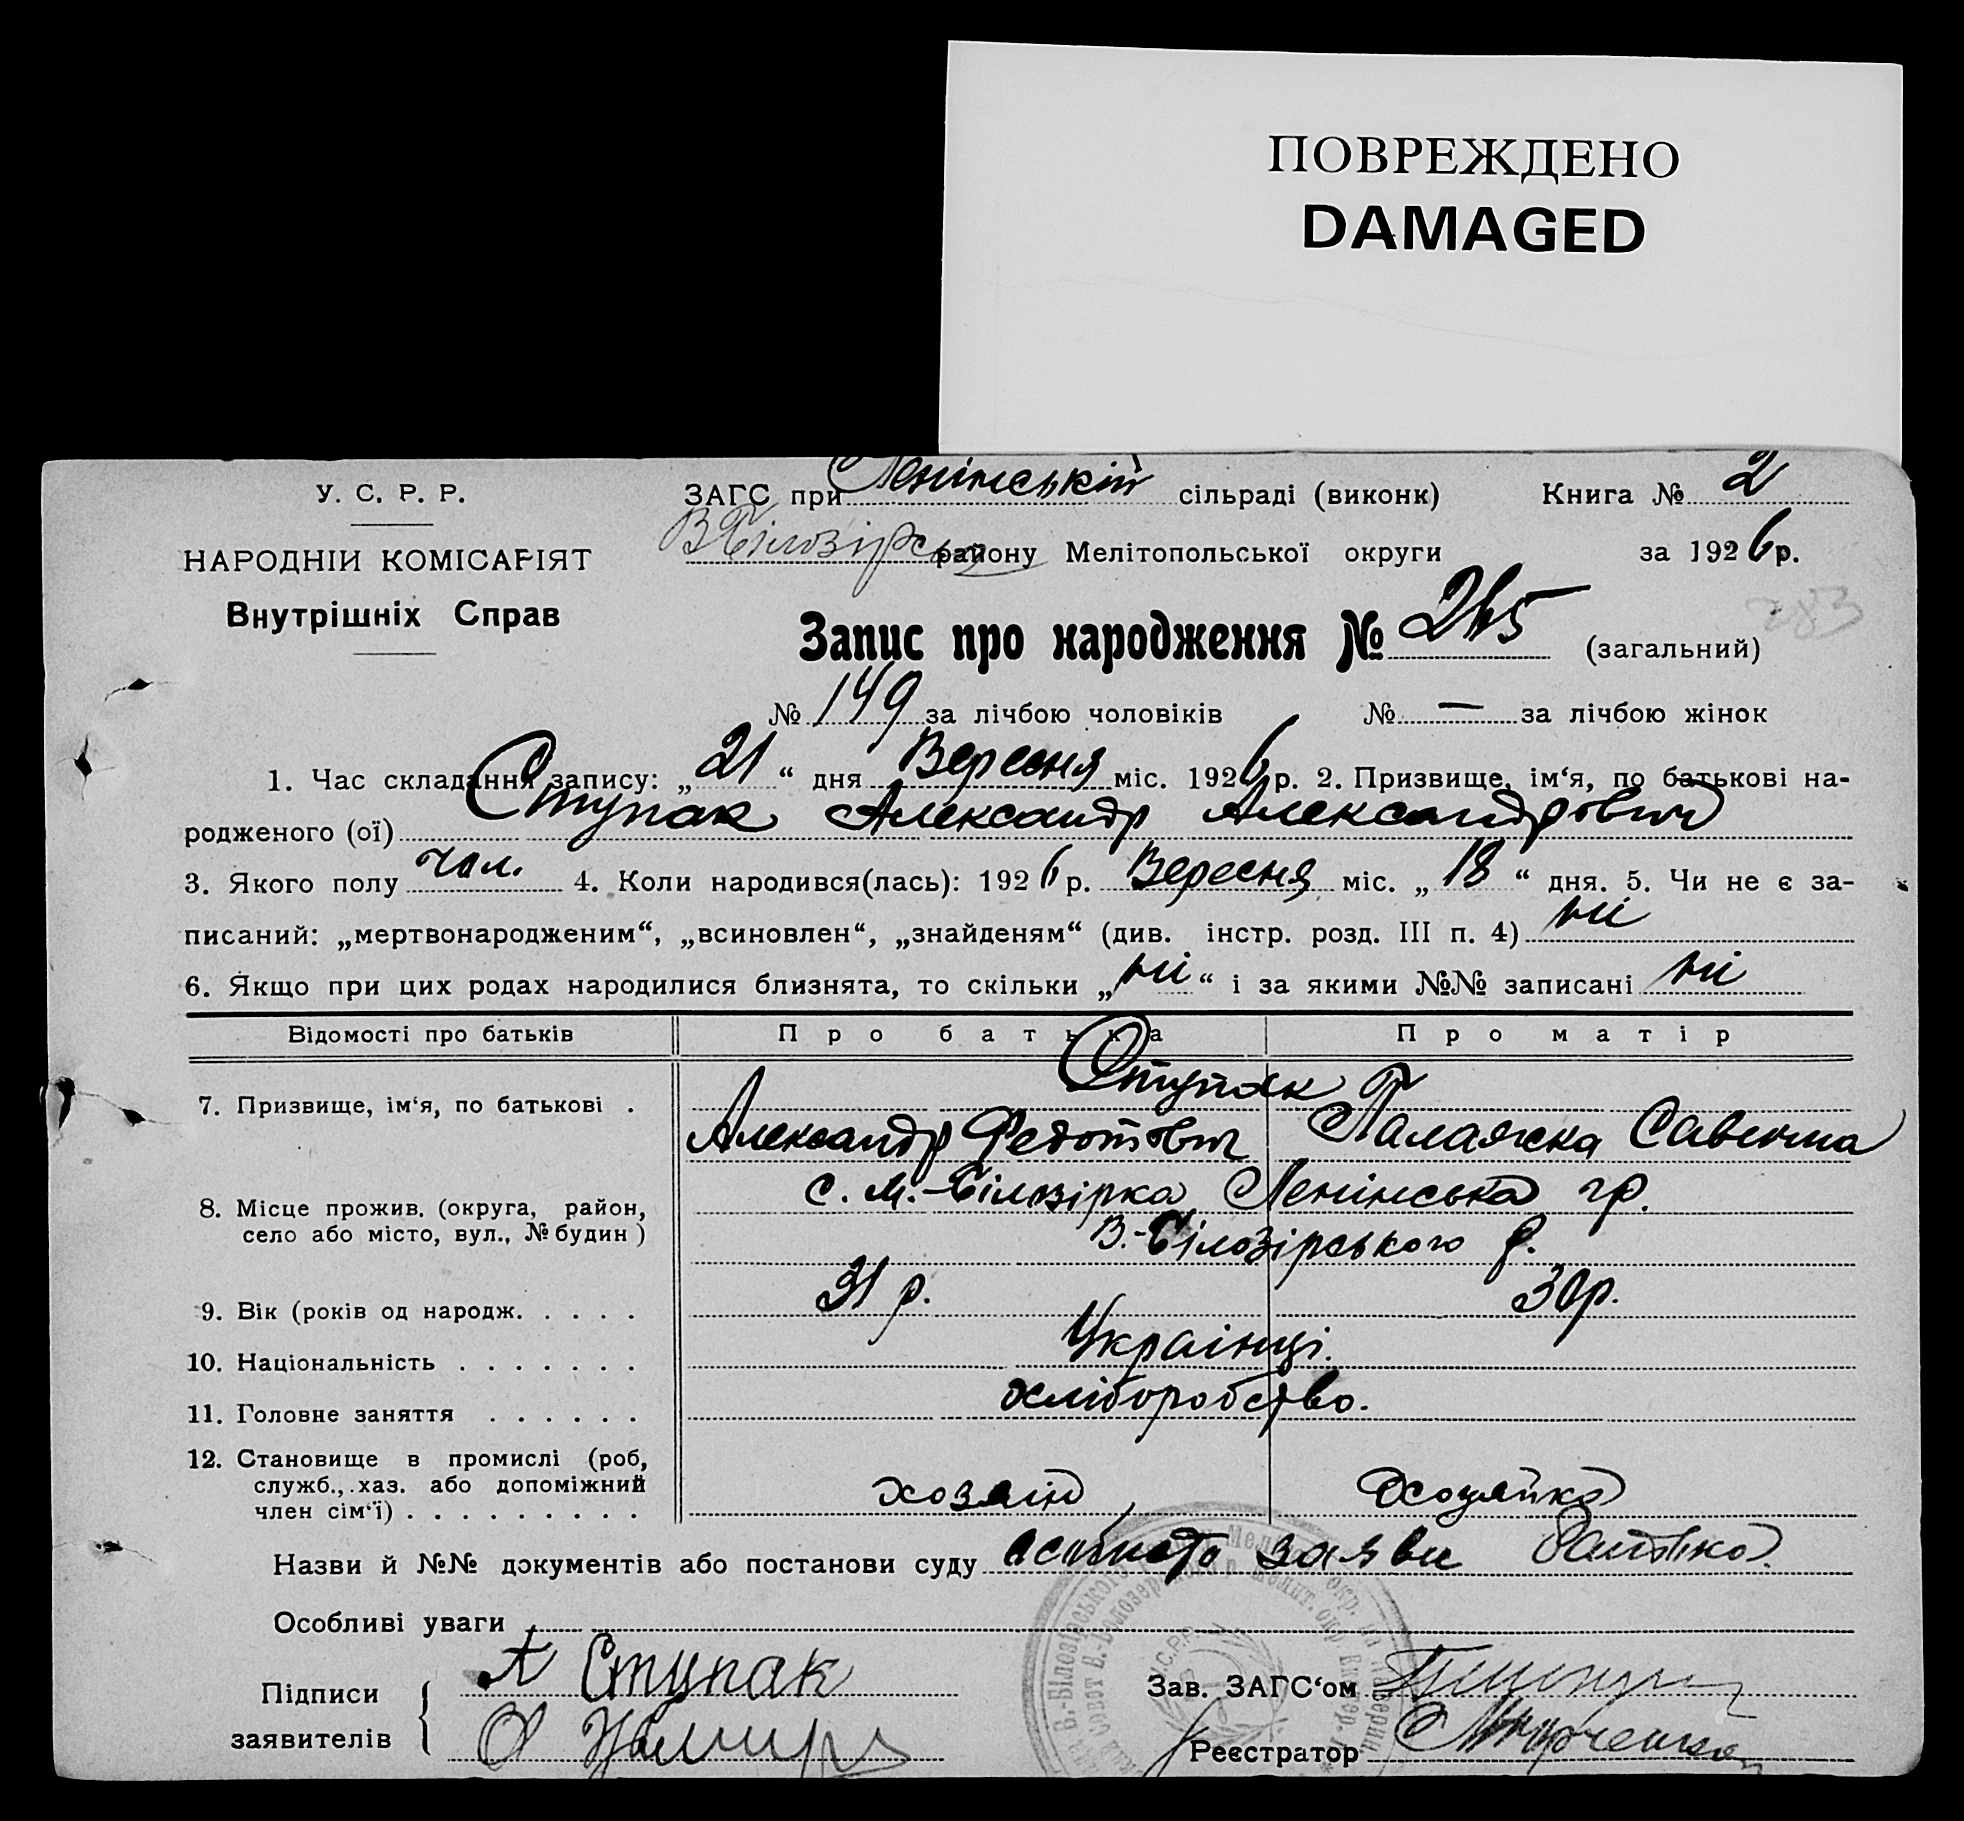 ПОВРЕЖДЕНО
DAMAGED
У. С. Р. Р.
НАРОДНІЙ КОМІСАРІЯТ
Внутрішніх Справ
ЗАГС при Ленінській сільраді (виконк) Книга № 2
В Білозірськ району Мелітопольської округи за 1926 р.
283
Запис про народження № 265 (загальний)
№ 149 за лічбою чоловіків № — за лічбою жінок
1. Час складання запису: „21“ дня Вересня міс. 1926 р. 2. Призвище, ім‘я, по батькові на-
родженого (ої) Ступак Александр Александрович
3. Якого полу чол. 4. Коли народився(лась): 1926 р. Вересня міс. „18“ дня. 5. Чи не є за-
писаний: „мертвонародженим“, „всиновлен“, „знайденям“ (див. інстр. розд. III п. 4) ні
6. Якщо при цих родах народилися близнята, то скільки „ні“ і за якими №№ записані ні
Відомості про батьків Про батька Про матір
7. Призвище, ім‘я, по батькові . Ступак
Александр Федотович Палажка Савична
8. Місце прожив. (округа, район, село або місто, вул., № будин) с. М.-Білозірка Ленінська гр.
В.-Білозірського р.
9. Вік (років од народж. . . . . 31 р. 30 р.
10. Національність . . . . . . . Українці.
11. Головне заняття . . . . . . хліборобство.
12. Становище в промислі (роб, служб., хаз. або допоміжний член сім‘ї) . . . . . . . . . хозяін хозяйка
Назви й №№ документів або постанови суду заяви батька.
Особливі уваги
Підписи заявителів А Ступак
Зав. ЗАГС‘ом
Реєстратор
У.С.Р.Р.